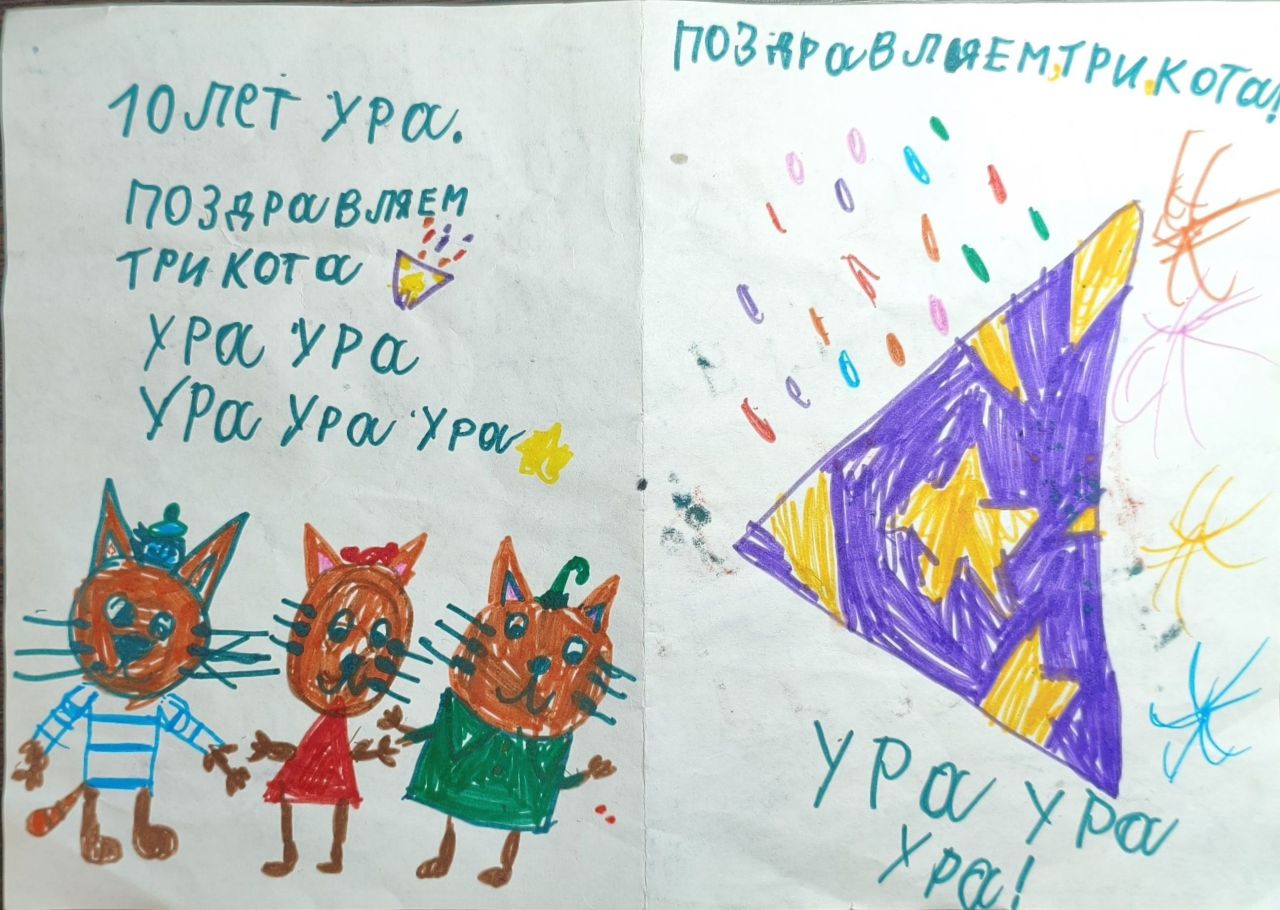 10 лет ура.
поздравляем
три кота
ура ура
ура ура ура
поздравляем, три кота!
ура ура
ура!